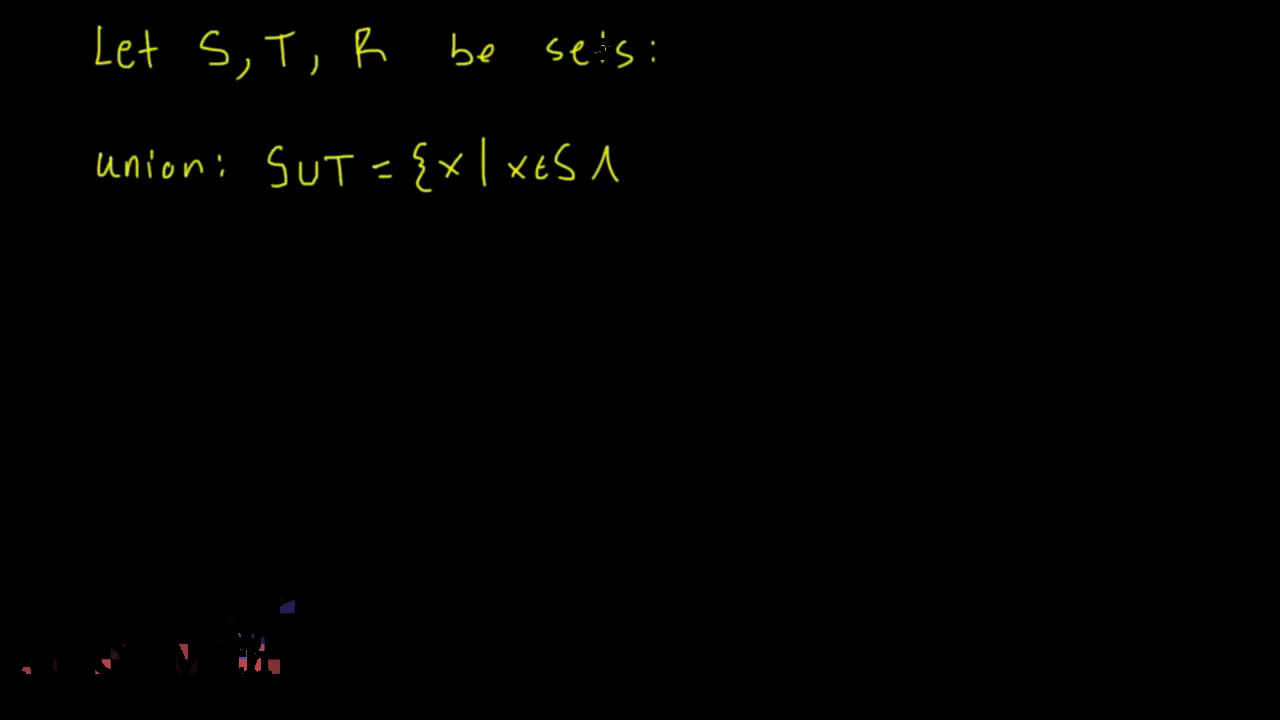 Let S, T, R be sets:
union: S∪T = {x | x∈S ∧